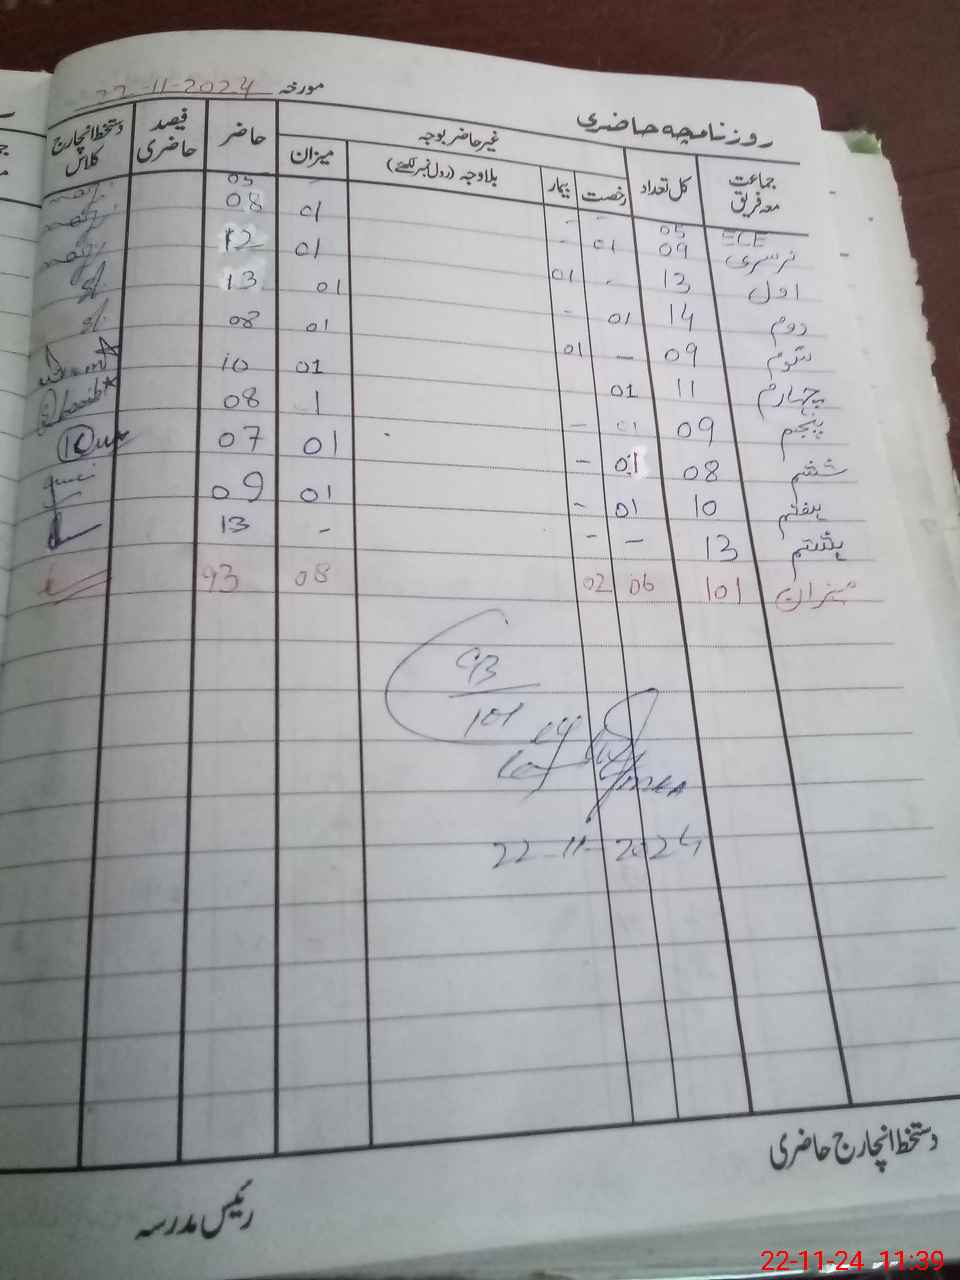 مورخہ 22-11-2024
روزنامچہ حاضری
جماعت معہ فریق کل تعداد غیر حاضر بوجہ رخصت بیمار بلاوجہ (رول نمبر لکھئے) میزان حاضر فیصد حاضری دستخط انچارج کلاس
ECE 05 - - 05
نرسری 09 01 - 01 08
اول 13 - 01 01 12
دوم 14 01 - 01 13
سوم 09 - 01 01 08
چہارم 11 01 01 10
پنجم 09 01 - 1 08
ششم 08 01 - 01 07
ہفتم 10 01 - 01 09
ہشتم 13 - - - 13
میزان 101 06 02 08 93
93
101
22-11-2024
دستخط انچارج حاضری
رئیس مدرسہ
22-11-24 11:39